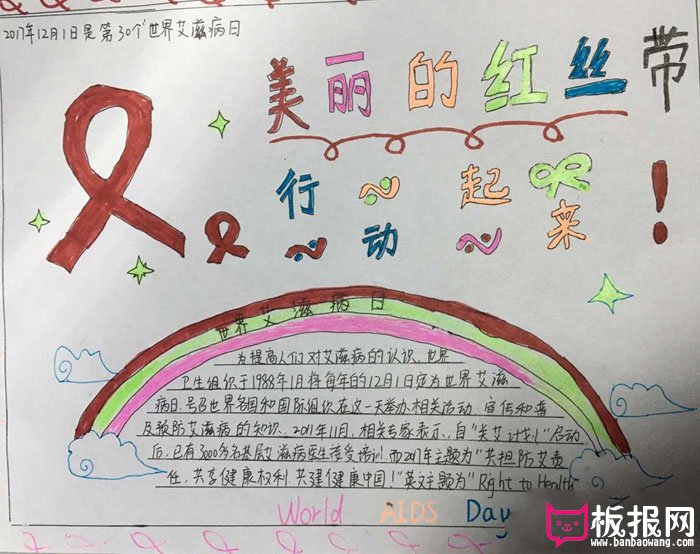 2017年12月1日是第30个世界艾滋病日
美丽的红丝带
行动起来!
世界艾滋病日
为提高人们对艾滋病的认识,世界
卫生组织于1988年1月将每年的12月1日定为世界艾滋
病日,号召世界各国和国际组织在这一天举办相关活动,宣传和普
及预防艾滋病的知识。2011年11月,相关专家表示,自“关艾计划”启动
后,已有3000多名基层艾滋病医生接受培训,而2017年主题为“共担防艾责
任,共享健康权利,共建健康中国”英文主题为“Right to Health”
World AIDS Day
板报网
www.banbaowang.com